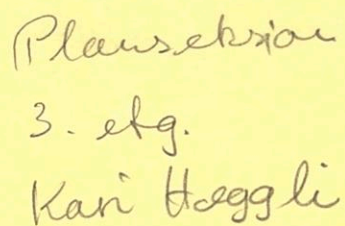 Planseksjon
3. etg.
Kari Hæggli